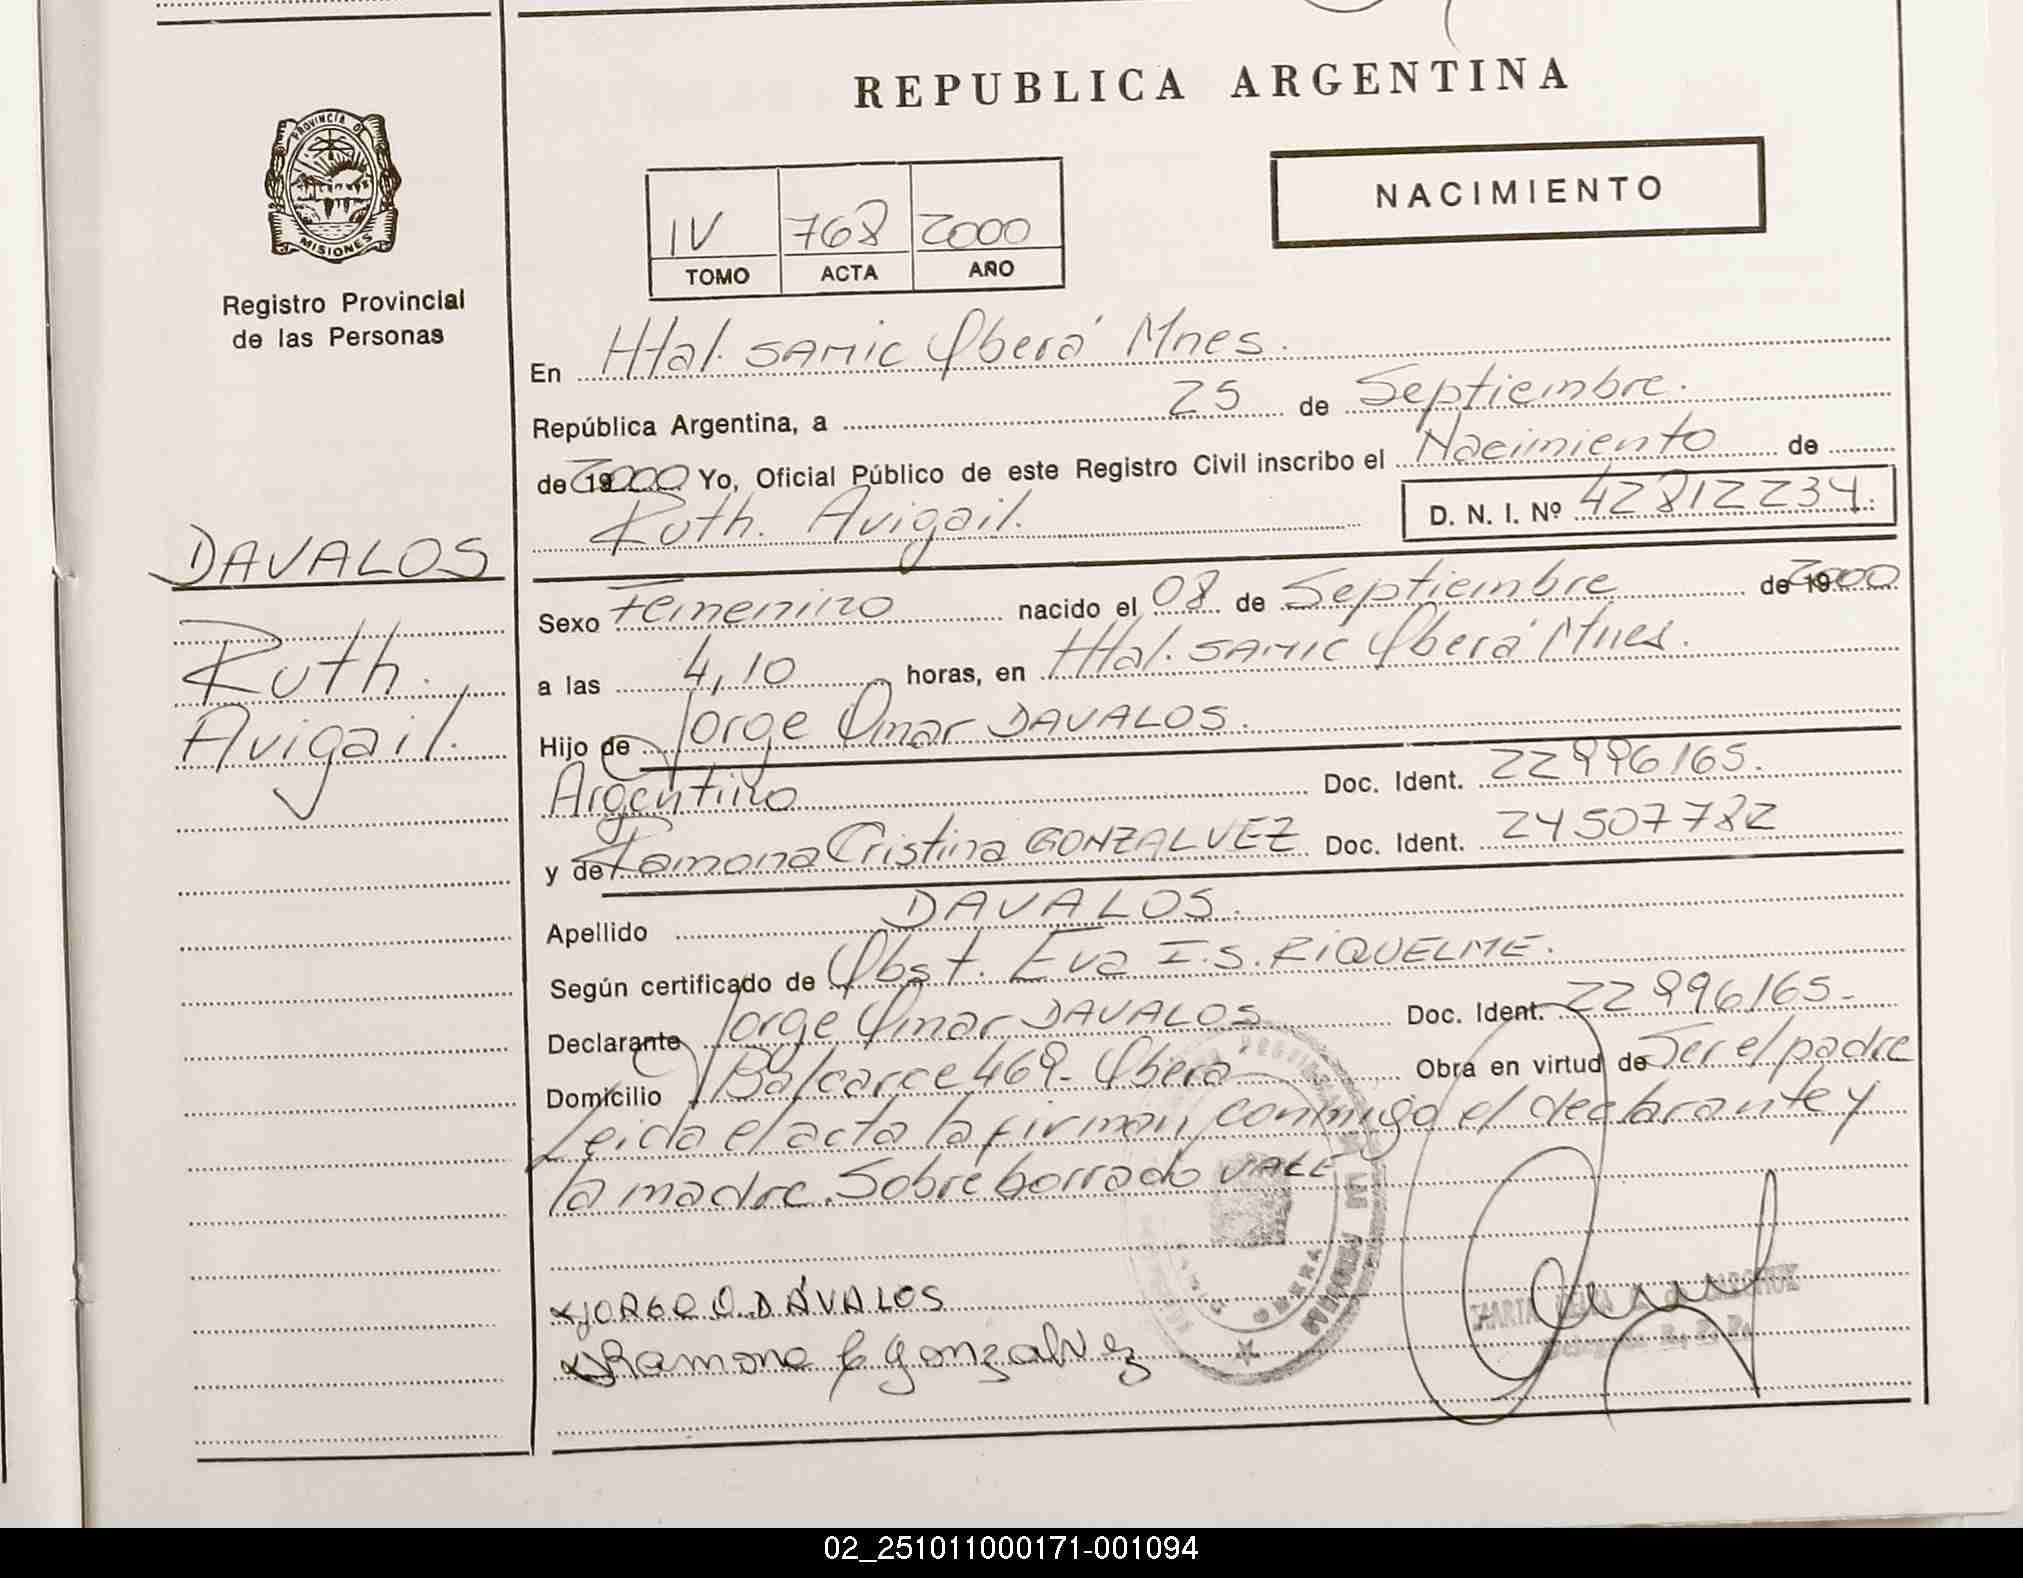 REPUBLICA ARGENTINA
PROVINCIA DE
MISIONES
Registro Provincial
de las Personas
NACIMIENTO
IV 768 2000
TOMO ACTA AÑO
En Htal. SAMIC Oberá Mnes.
República Argentina, a 25 de Septiembre.
de 2000 Yo, Oficial Público de este Registro Civil inscribo el Nacimiento de
Ruth. Avigail. D. N. I. Nº 42812234.
DAVALOS
Ruth.
Avigail.
Sexo Femenino nacido el 08 de Septiembre de 2000
a las 4,10 horas, en Htal. SAMIC Oberá Mnes.
Hijo de Jorge Omar DAVALOS.
Argentino Doc. Ident. 22996165.
y de Ramona Cristina GONZALVEZ Doc. Ident. 24507782
Apellido DAVALOS.
Según certificado de Obst. Eva I.S. RIQUELME.
Declarante Jorge Omar DAVALOS Doc. Ident. 22996165-
Domicilio Balcarce 469- Oberá Obra en virtud de Ser el padre
Leida el acta la firman conmigo el declarante y
la madre. Sobreborrado VALE
x JORGE O. DÁVALOS
x Ramona C Gonzalvez
02_251011000171-001094